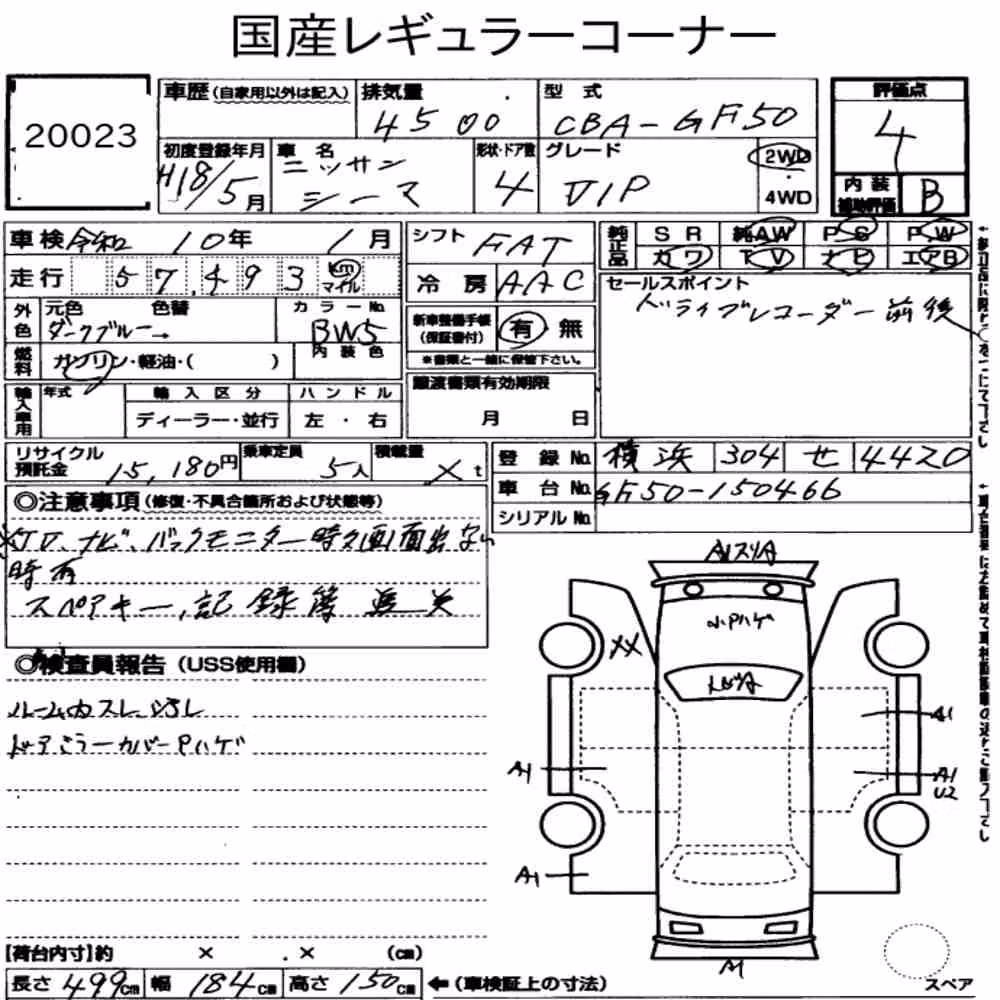 国産レギュラーコーナー
20023
車歴(自家用以外は記入) 排気量 4500 型式 CBA-GF50 評価点 4
初度登録年月 H18/5月 車名 ニッサン シーマ 形状・ドア数 4 グレード VIP 2WD 4WD 内装補助評価 B
車検 令和 10年 1月 シフト FAT 純正品 SR 純AW PS PW
走行 57,493 km マイル 冷房 AAC カワ TV ナビ エアB
外色 元色 色替 カラーNo. セールスポイント
ダークブルー→ BW5 新車整備手帳(保証書付) 有 無 ドライブレコーダー前後
燃料 ガソリン・軽油・( ) 内装色 ※書類と一緒に保管下さい。
輸入車用 年式 輸入区分 ハンドル 譲渡書類有効期限
ディーラー・並行 左・右 月 日
リサイクル預託金 15,180円 乗車定員 5人 積載量 ✓t 登録No. 横浜 304 せ 4420
車台No. GF50-150466
シリアルNo.
◎注意事項(修復・不具合箇所および状態等)
※TV、ナビ、バックモニター時々画面出ない
時有
スペアキー、記録簿
◎検査員報告(USS使用欄)
ルーム内スレ、汚レ
ドアミラーカバーPハゲ
A1スリA
小Pハゲ
XX
A1
A1
A1
U2
A1
A1
スペア
[荷台内寸]約 × . × (cm)
長さ 499cm 幅 184cm 高さ 150cm ←(車検証上の寸法)